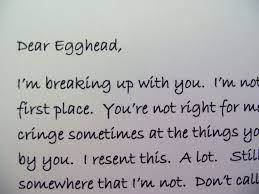 Dear Egghead,
I'm breaking up with you. I'm not
first place. You're not right for
cringe sometimes at the things
by you. I resent this. A lot.
somewhere that I'm not. Don't